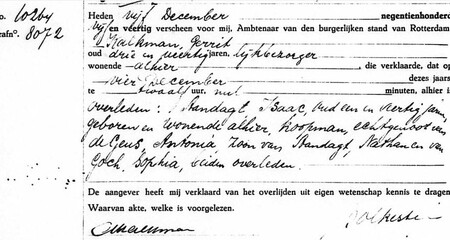 No. 10264
Grafn°. 8072
Heden vijf December negentienhonderd
vijf en veertig verscheen voor mij, Ambtenaar van den burgerlijken stand van Rotterdam
Markman, Gerrit
oud drie en veertig jaren, lijkbezorger
wonende alhier, die verklaarde, dat op
vier December dezes jaars
te twaalf uur, nul minuten, alhier is
overleden: Standagt, Isaac, oud een en veertig jaren,
geboren en wonende alhier, koopman, echtgenoot van
de Geus, Antonia, zoon van Standagt, Nathan en van
Goch, Sophia, beiden overleden.
De aangever heeft mij verklaard van het overlijden uit eigen wetenschap kennis te dragen.
Waarvan akte, welke is voorgelezen.